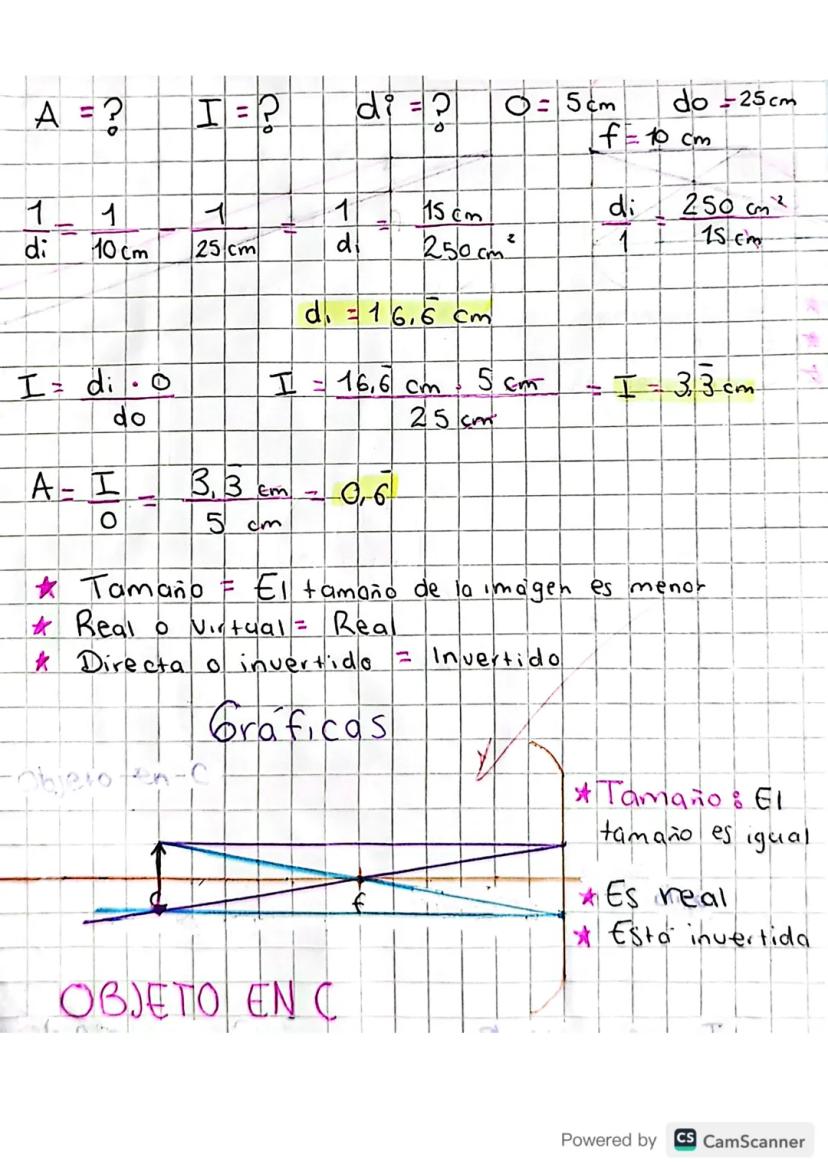 A = ? I = ? di = ? O = 5cm do = 25cm
f = 10 cm
1/di = 1/10cm - 1/25cm = 1/di = 15cm/250cm² di/1 = 250 cm²/15 cm
di = 16,6̄ cm
I = di · O/do I = 16,6̄ cm . 5 cm/25 cm = I = 3,3̄ cm
A = I/O = 3,3̄ cm/5 cm = 0,6̄
★ Tamaño = El tamaño de la imágen es menor
★ Real o Virtual = Real
★ Directa o invertido = Invertido
Gráficas
Objeto en C
★ Tamaño : El
tamaño es igual
C f
★ Es real
★ Está invertida
OBJETO EN C
Powered by CS CamScanner